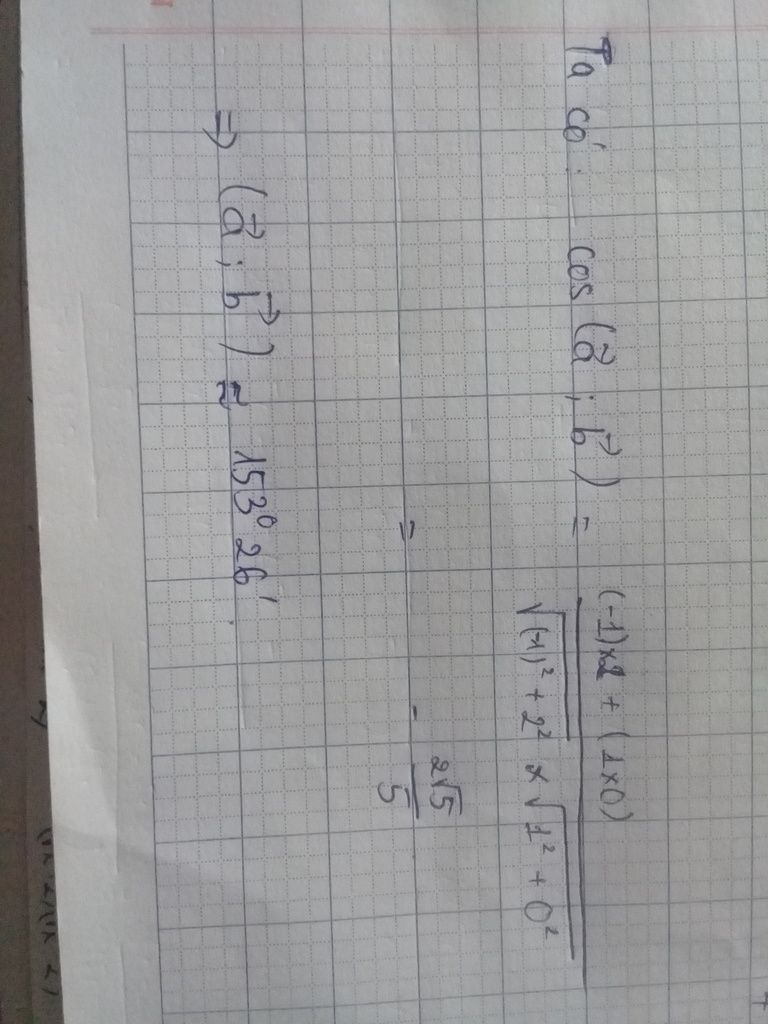 Ta có: cos (a⃗ ; b⃗) = ((-1)×2 + (1×0)) / (√((-1)² + 2²) × √(1² + 0²))
= - 2√5 / 5
⇒ (a⃗ ; b⃗) ≈ 153° 26'